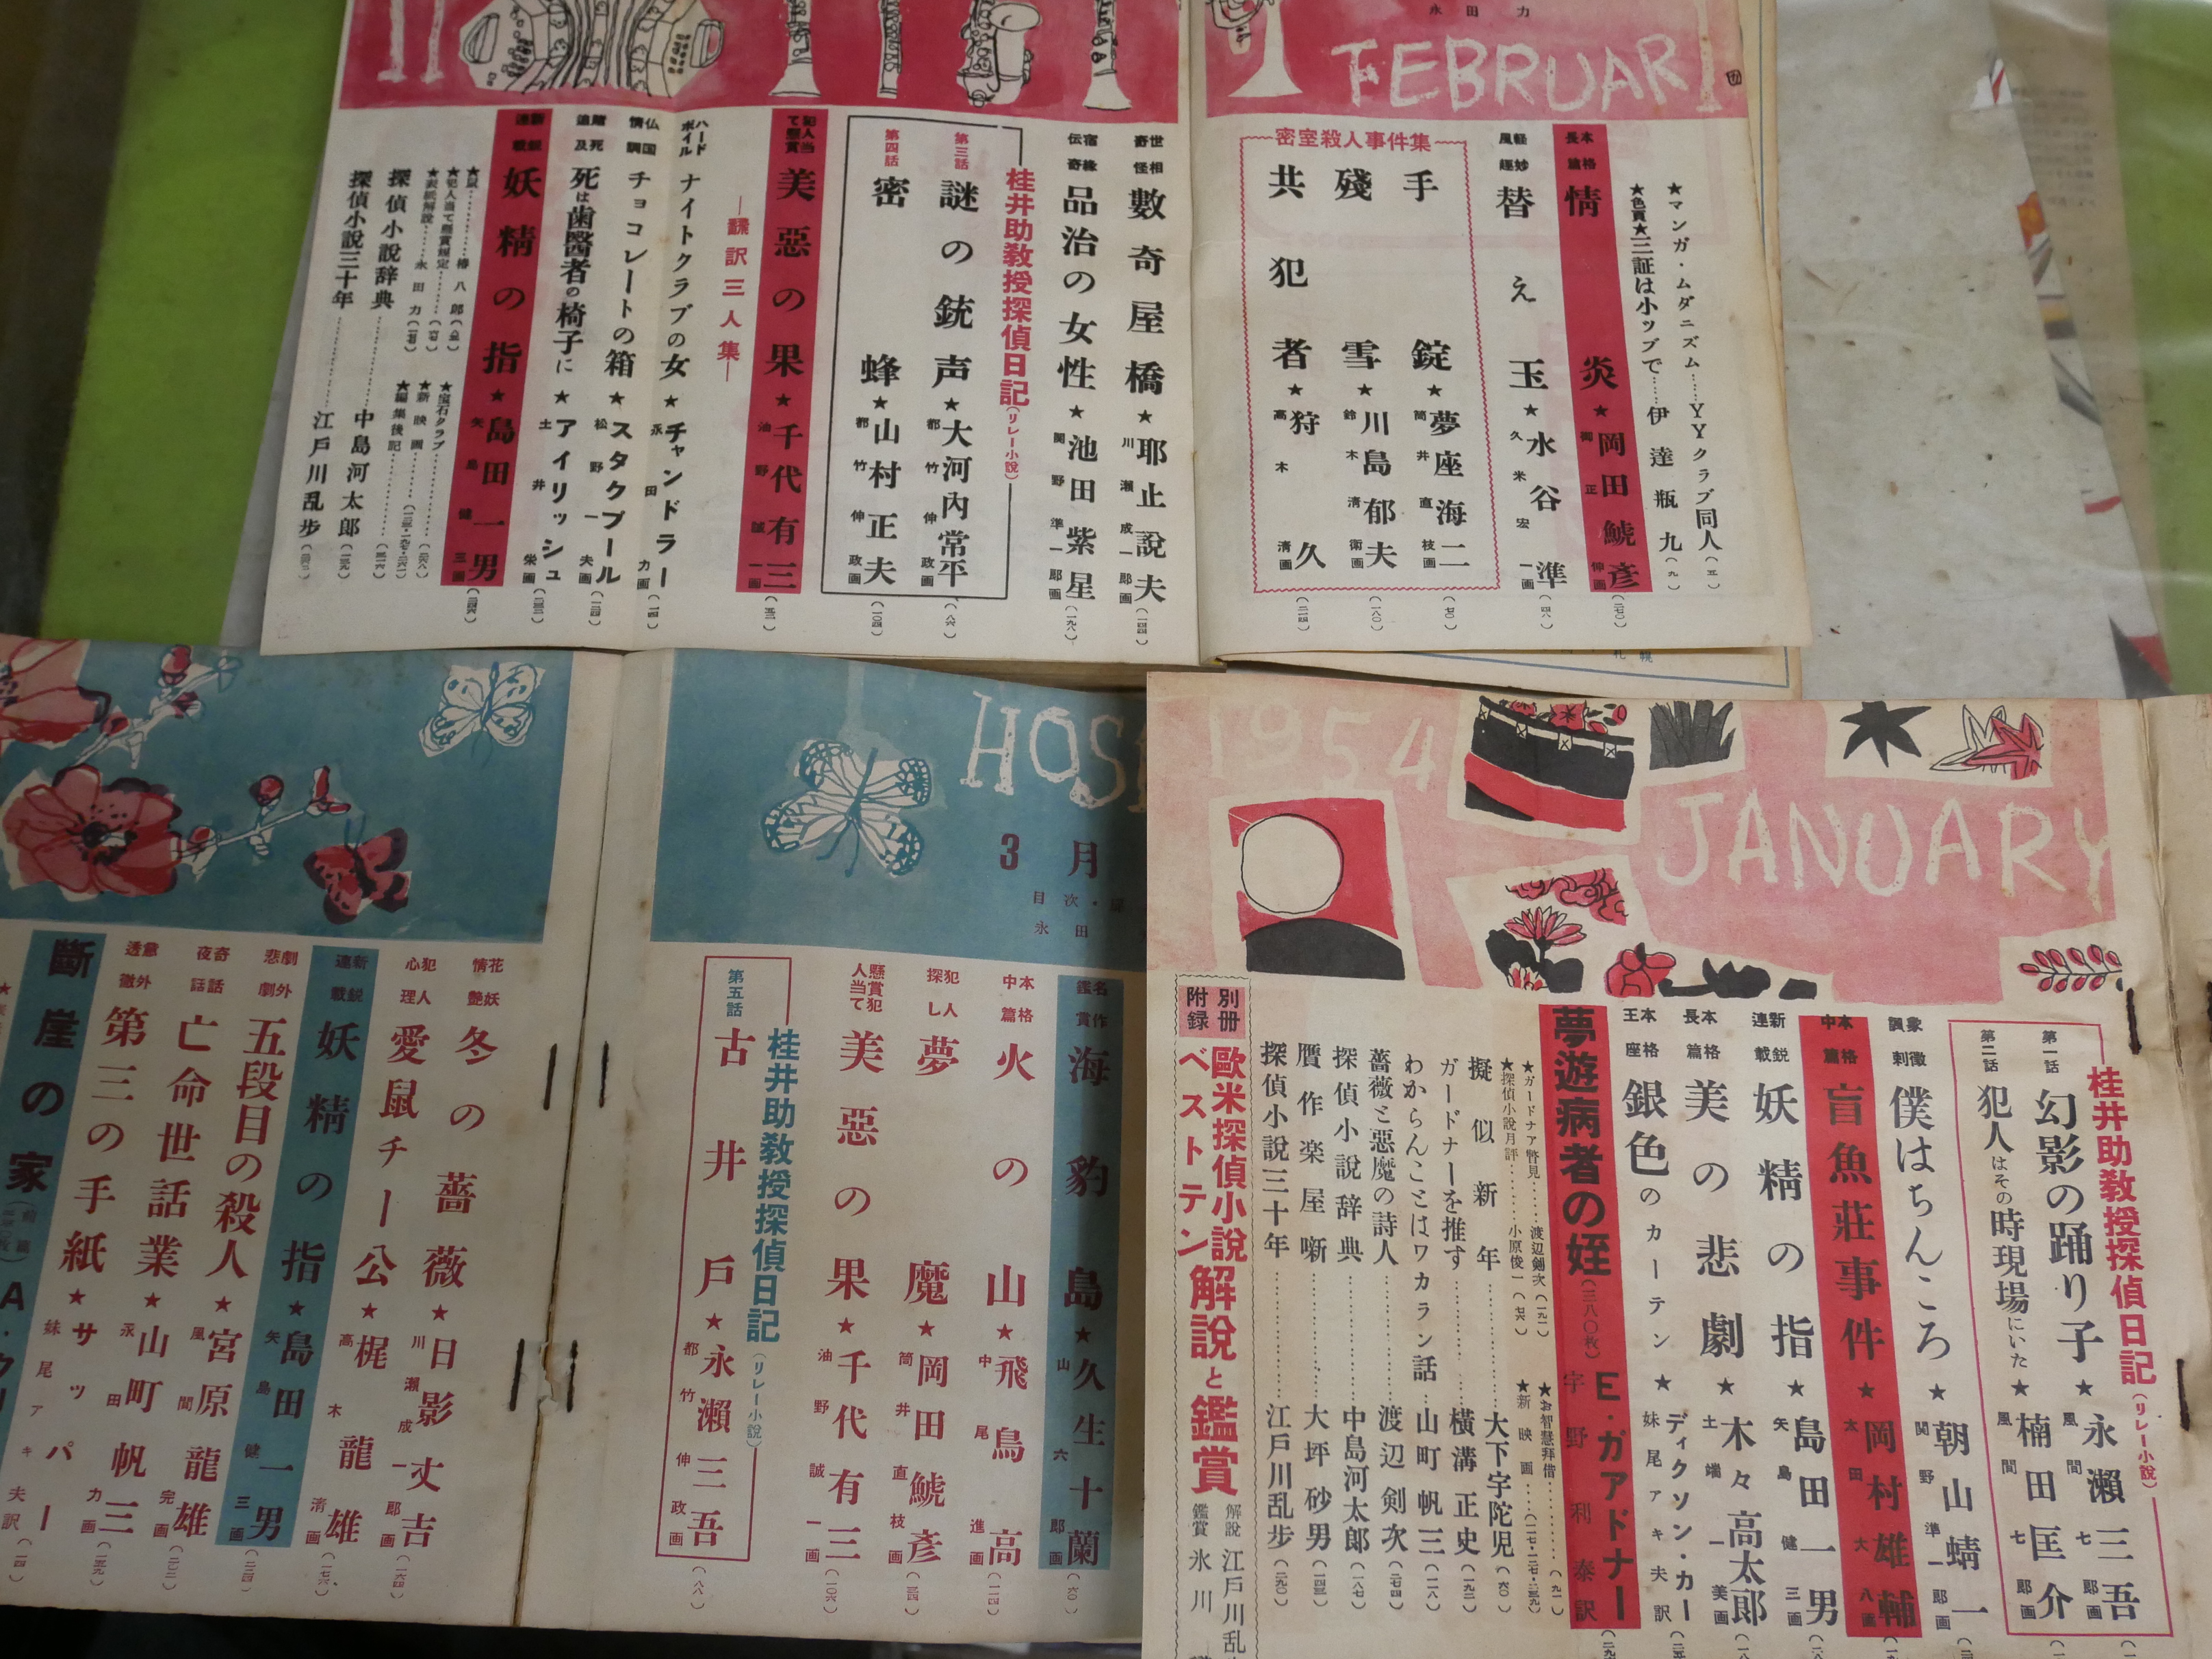 永田力
FEBRUAR
★マンガ・ムダニズム……YYクラブ同人
★色頁★三証は小ップで……伊達瓶九
本格長篇
情炎★岡田鯱彦
御正伸画
軽妙風趣
替え玉★水谷準
久米宏一画
密室殺人事件集
手錠★夢座海二
筒井直枝画
殘雪★川島郁夫
鈴木清衛画
共犯者★狩久
高木清画
世相奇怪
數奇屋橋★耶止說夫
川瀬成一郎画
宿縁伝奇
品治の女性★池田紫星
関野準一郎画
桂井助教授探偵日記(リレー小説)
第三話
謎の銃声★大河內常平
都竹伸政画
第四話
密蜂★山村正夫
都竹伸政画
犯人当て懸賞
美惡の果★千代有三
油野誠一画
―飜訳三人集―
ハードボイル
ナイトクラブの女★チャンドラー
永田力画
仏国情調
チョコレートの箱★スタクプール
松野一夫画
賭死追及
死は歯醫者の椅子に★アイリッシュ
土井栄画
新鋭連載
妖精の指★島田一男
矢島健三画
★鼠……椿八郎
★犯人当て懸賞規定
★表紙解說……永田力
★宝石クラブ
★新映画
★編集後記
探偵小説辞典……中島河太郎
探偵小説三十年……江戸川乱歩
HOS
3月
目次・扉
永田
名作鑑賞
海豹島★久生十蘭
山六郎画
本格中篇
火の山★飛鳥高
中尾進画
犯人探し
夢魔★岡田鯱彦
筒井直枝画
懸賞犯人当て
美惡の果★千代有三
油野誠一画
桂井助教授探偵日記(リレー小説)
第五話
古井戸★永瀨三吾
都竹伸政画
花妖情艶
冬の薔薇★日影丈吉
川瀬成一郎画
犯人心理
愛鼠チー公★梶龍雄
高木清画
新鋭連載
妖精の指★島田一男
矢島健三画
劇外悲劇
五段目の殺人★宮原龍雄
風間完画
奇話夜話
亡命世話業★山町帆三
永田力画
意外透徹
第三の手紙★サッパー
妹尾アキ夫訳
斷崖の家
1954
JANUARY
桂井助教授探偵日記(リレー小説)
第一話
幻影の踊り子★永瀨三吾
風間七郎画
第二話
犯人はその時現場にいた★楠田匡介
風間七郎画
象徴諷刺
僕はちんころ★朝山蜻一
関野準一郎画
本格中篇
盲魚荘事件★岡村雄輔
太田大八画
新鋭連載
妖精の指★島田一男
矢島健三画
本格長篇
美の悲劇★木々高太郎
土端一美画
本格王座
銀色のカーテン★ディクソン・カー
妹尾アキ夫訳
夢遊病者の姪(三八〇枚)E・ガアドナー
宇野利泰訳
★ガードナア瞥見……渡辺剣次
★探偵小説月評……小原俊一
★お智慧拝借
★新映画
擬似新年……大下宇陀児
ガードナーを推す……横溝正史
わからんことはワカラン話……山町帆三
薔薇と悪魔の詩人……渡辺剣次
探偵小説辞典……中島河太郎
贋作楽屋噺……大坪砂男
探偵小説三十年……江戸川乱歩
別冊附録
歐米探偵小説ベストテン解說と鑑賞
解説 江戸川乱
鑑賞 氷川